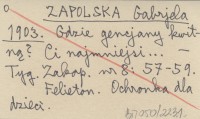 ZAPOLSKA Gabrjela
1903. Gdzie gencjany kwit-
ną? Ci najmniejsi... —
Tyg. Zakop. nr 8: 57-59.
Felieton. Ochronka dla
dzieci.